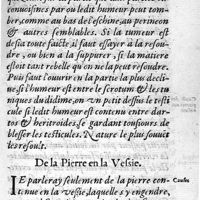 cenuoisines par ou ledit humeur peut tom-
ber, comme au bas de l'eschine, au perineon
& autres semblables. Si la tumeur est
desia toute faicte, il faut essayer à la resou-
dre, ou bien à la suppurer, si la matiere
estoit tant rebelle qu'on ne la peut resendre.
Puis faut l'ouurir en la partie la plus decli-
ne, si l'humeur est entre le scrotum & les tu
niques du didime, ou vn petit dessus le testi
cule si ledit humeur est contenu entre dar-
tos & heritroides, se gardant tousiours de
blesser les testicules. Nature le plus souuēt
les resoult.
De la Pierre en la Vessie.
IE parleray seulement de la pierre con-
tinue en la vessie, laquelle s'y engendre,
Causes